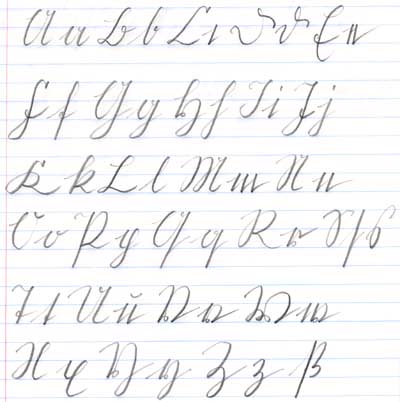 A a B b C c D d E e
F f G g H h I i J j
K k L l M m N n
O o P p Q q R r S ſ s
T t U u V v W w
X x Y y Z z ß